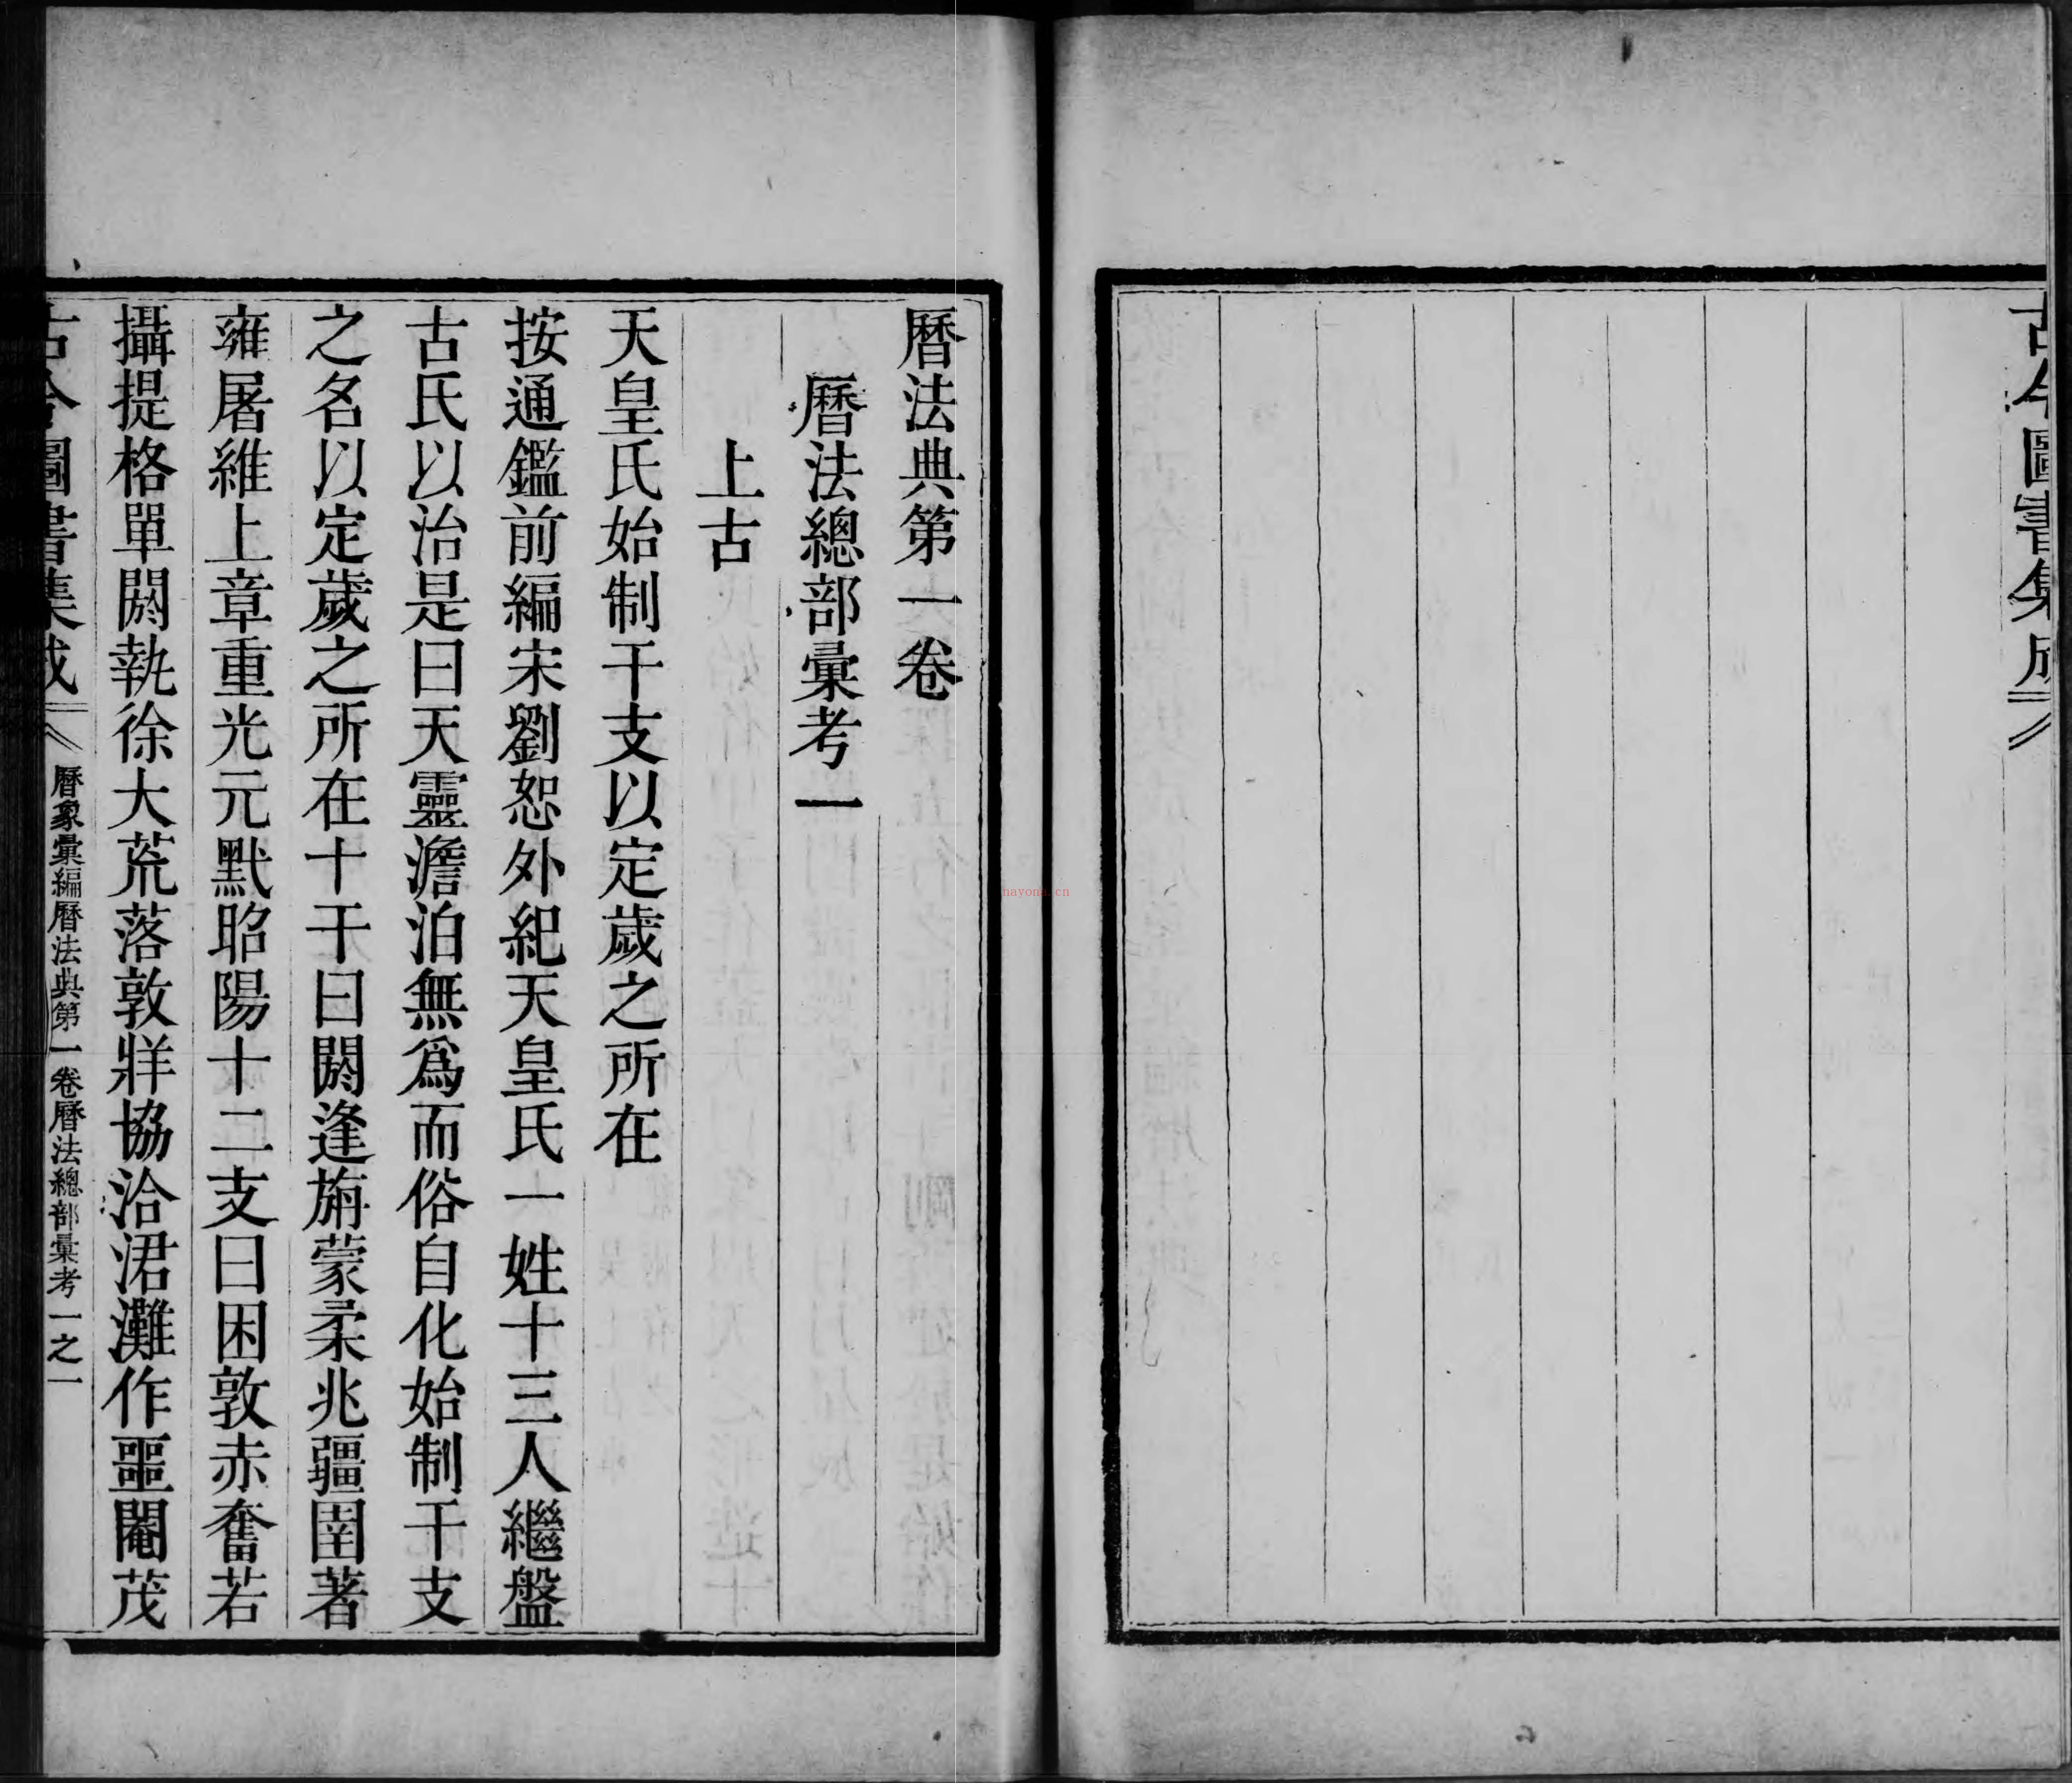 古今圖書集成
曆法典第一卷
曆法總部彙考一
上古
天皇氏始制干支以定歲之所在
按通鑑前編宋劉恕外紀天皇氏一姓十三人繼盤
古氏以治是曰天靈澹泊無爲而俗自化始制干支
之名以定歲之所在十干曰閼逢旃蒙柔兆疆圉著
雍屠維上章重光元黓昭陽十二支曰困敦赤奮若
攝提格單閼執徐大荒落敦牂協洽涒灘作噩閹茂
古今圖書集成
曆象彙編曆法典第一卷曆法總部彙考一之一
hayona.cn